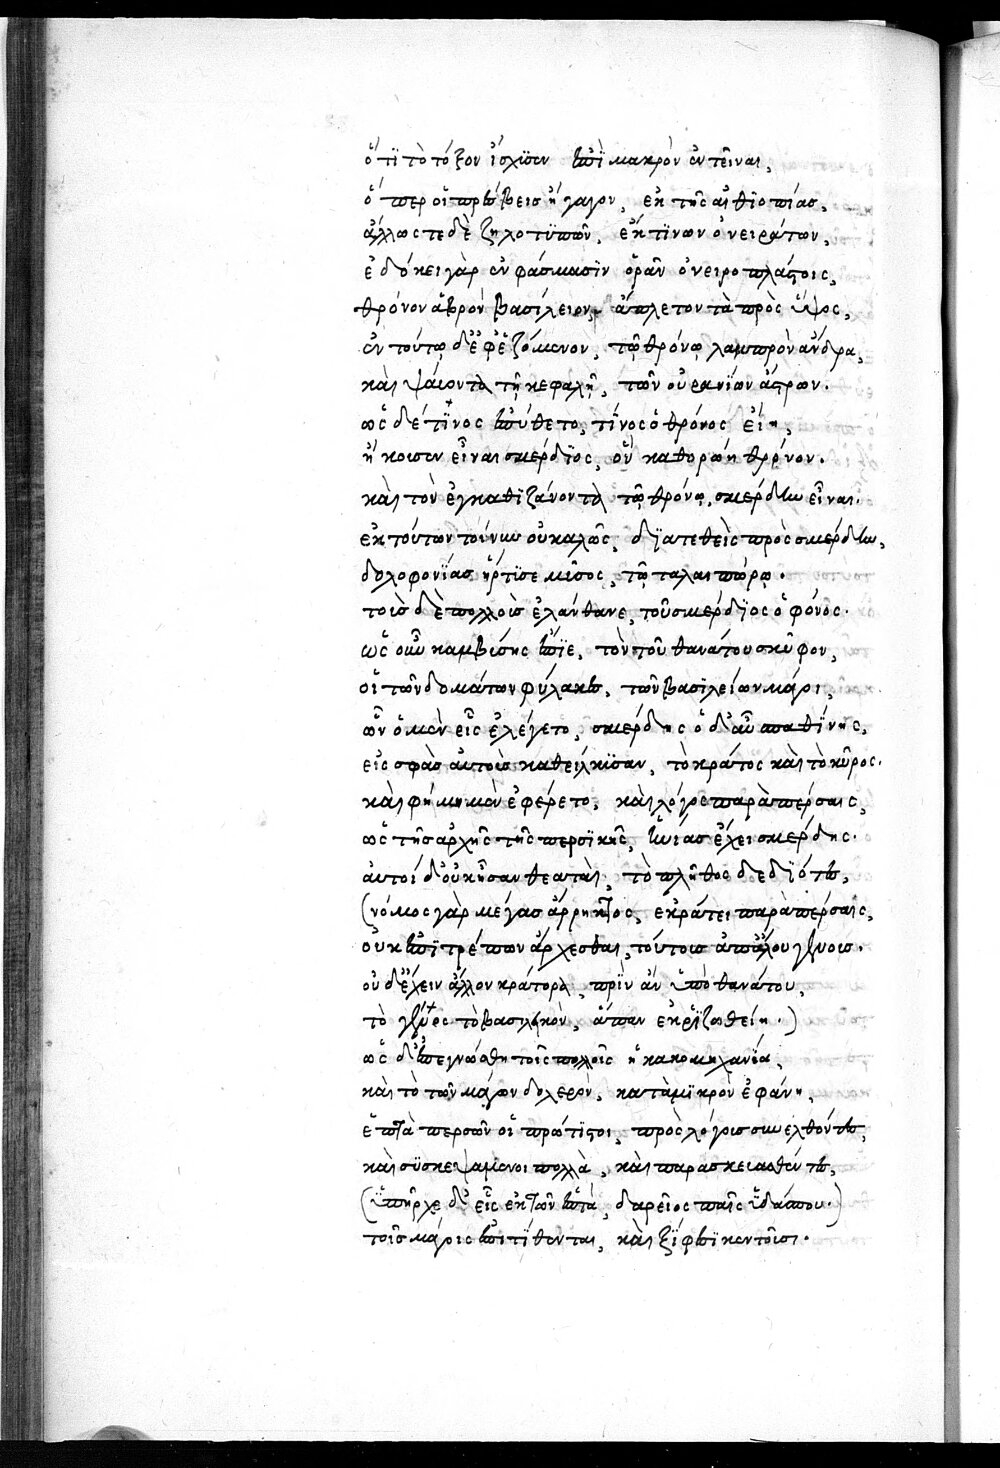 ὅτι τὸ τόξον ἴσχϊσεν ἐπϊ μακρὸν ἐντεῖναι,
ὅπερ οἱ πρέσβεισ ἤγαγον, ἐκ τῆς αἰθϊοπίας,
ἄλλως τε δὲ ζηλοτϋπῶν, ἐκ τϊνων ὀνειράτων,
ἐδόκει γὰρ ἐν φάσμασϊν ὁρᾶν ὀνειροπλάστοις,
θρόνον ἁβρὸν βασίλειον, ἄπλετον τὰ πρὸς ὕψος,
ἐν τούτω δ' ἐφεζόμενον, τῶ θρόνω λαμπρὸν ἄνδρα,
καὶ ψάυοντα τῆ κεφαλῆ, τῶν οὐρανϊῶν ἄστρων.
ὡς δέ τϊνος ἐπύθετο, τίνος ὁ θρόνος εἴη,
ἤκουσεν εἶναι σμέρδϊος, ὃν καθορώη θρόνον.
καὶ τὸν ἐγκαθϊζάνοντα τῶ θρόνω, σμέρδην εἶναι.
ἐκ τούτων τοίνυν οὐ καλῶς, διατεθεὶς πρὸς σμέρδην,
δολοφονϊας ἤρτϊσε μῖσος, τῶ ταλαιπώρω.
τοῖσ δὲ πολλοῖσ ἐλάνθανε, τοῦ σμέρδϊος ὁ φόνος.
ὡς οὖν καμβύσης ἔπϊε, τὸν τοῦ θανάτου σκῦφον,
οἱ τῶν δομάτων φύλακες, τῶν βασϊλείων μάγοι,
ὧν ὁ μὲν εἷς ἐλέγετο, σμέρδης ὁ δ' αὖ σπαθϊνης,
εἰς σφᾶσ αὐτοὺσ καθείλκϊσαν, τὸ κράτος καὶ τὸ κῦρος.
καὶ φήμη μὲν ἐφέρετο, καὶ λόγος παρὰ πέρσαις,
ὡς τῆσ ἀρχῆς τῆς περσϊκῆς, ἡνίασ ἔχει σμέρδης.
αὐτοὶ δ' οὐκ ἦσαν θεαταὶ, τὸ πλῆθος δεδϊότες,
(νόμος γὰρ μέγασ ἄρρηκτος, ἐκράτει παρὰ πέρσαις,
οὐκ ἐπϊτρέπων ἄρχεσθαι, τούτοισ ἀπ' ἄλλου γένους.
οὐδ' ἔχειν ἄλλον κράτορα, πρϊν ἂν ὑπὸ θανάτου,
τὸ γένος τὸ βασιλϊκὸν, ἅπαν ἐκρϊζωθείη.)
ὡς δ' ἐπεγνώσθη τοῖς πολλοῖς ἡ κακομηχανία,
καὶ τὸ τῶν μάγων δολερὸν, κατὰ μϊκρὸν ἐφάνη,
ἑπτὰ περσῶν οἱ πρώτϊστοι, πρὸς λόγους συνελθόντες,
καὶ σϋσκεψάμενοι πολλὰ, καὶ παρασκευασθέντες,
(ὑπῆρχε δ' εἷς ἐκ τῶν ἑπτὰ, δαρεῖος παῖς ὑδάσπου.)
τοῖσ μάγοις ἐπϊτϊθενται, καὶ ξϊφεσϊ κεντοῦσι.